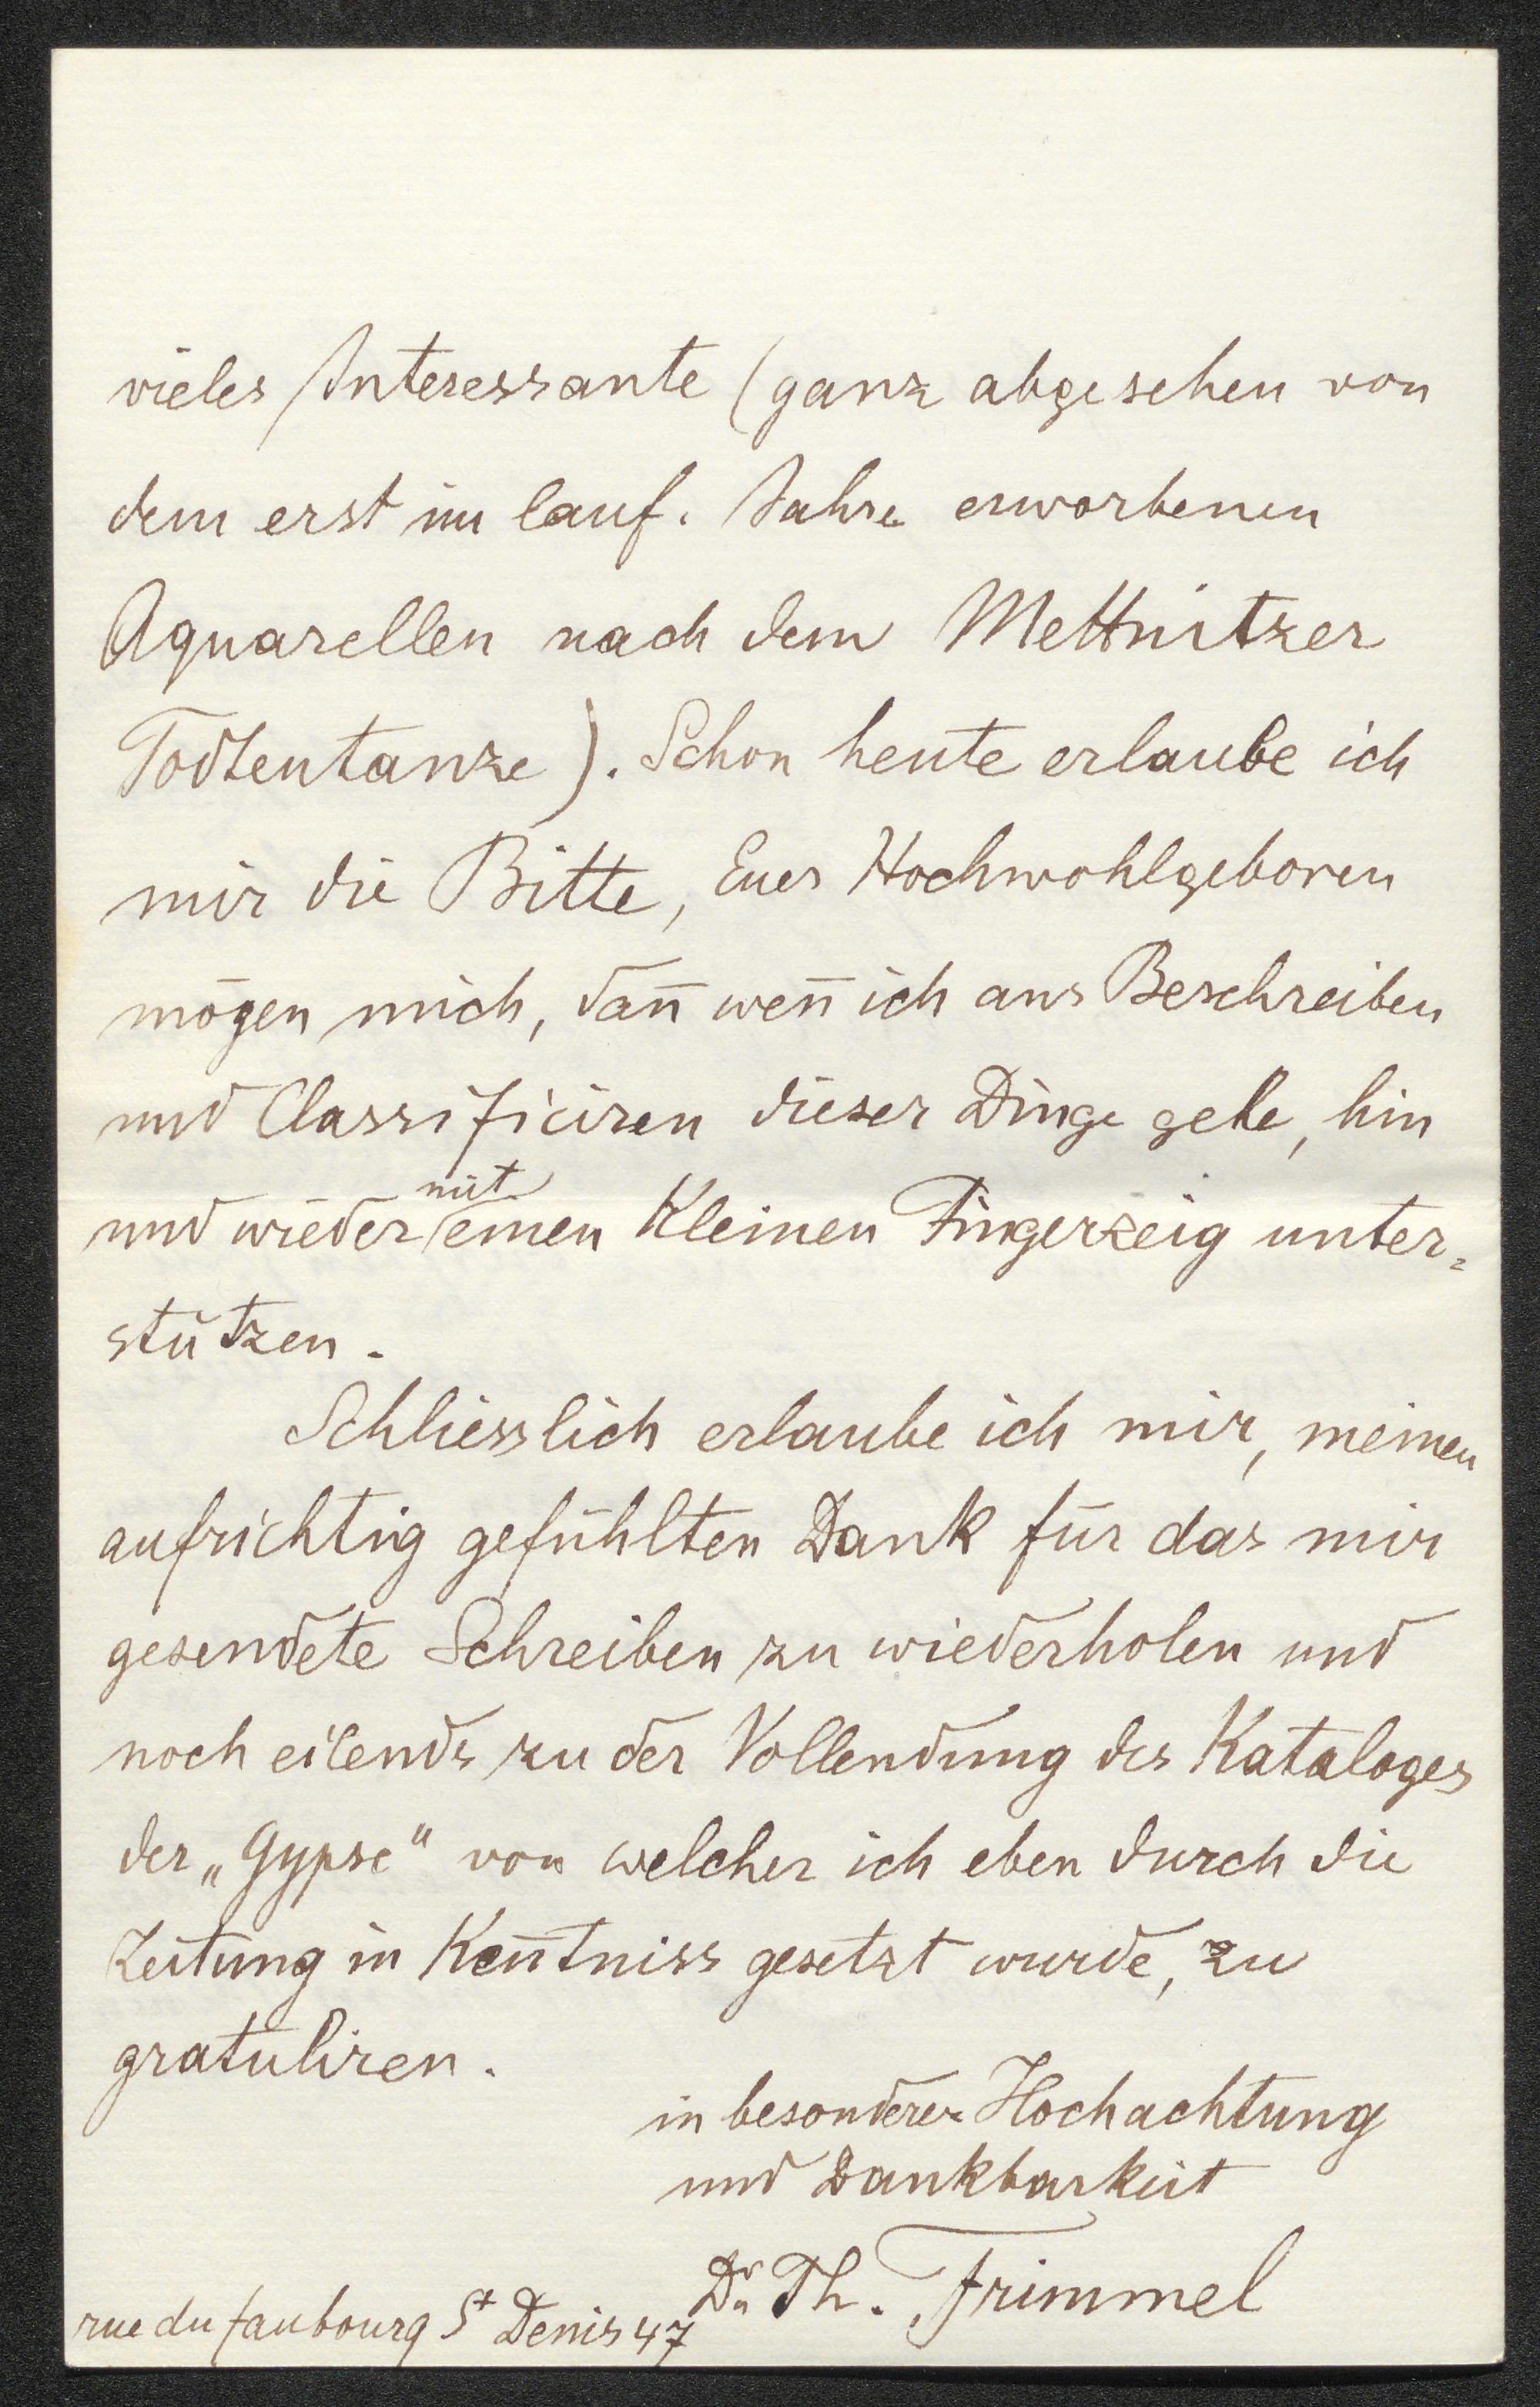 vieles Interessante (ganz abgesehen von
dem erst im lauf. Jahre erworbenen
Aquarellen nach dem Mettnitzer
Todtentanze). Schon heute erlaube ich
mir die Bitte, Euer Hochwohlgeboren
mögen mich, dan̄ wen̄ ich ans Beschreiben
und Classificiren dieser Dinge gehe, hin
und wieder mit einen kleinen Fingerzeig unter=
stützen.
Schliesslich erlaube ich mir, meinen
aufrichtig gefühlten Dank für das mir
gesendete Schreiben zu wiederholen und
noch eilends zu der Vollendung des Kataloges
der „Gypse“ von welcher ich eben durch die
Zeitung in Ken̄tniss gesetzt wurde, zu
gratuliren.
in besonderer Hochachtung
und Dankbarkeit
Dr. Th. Frimmel
rue du faubourg St Denis 47